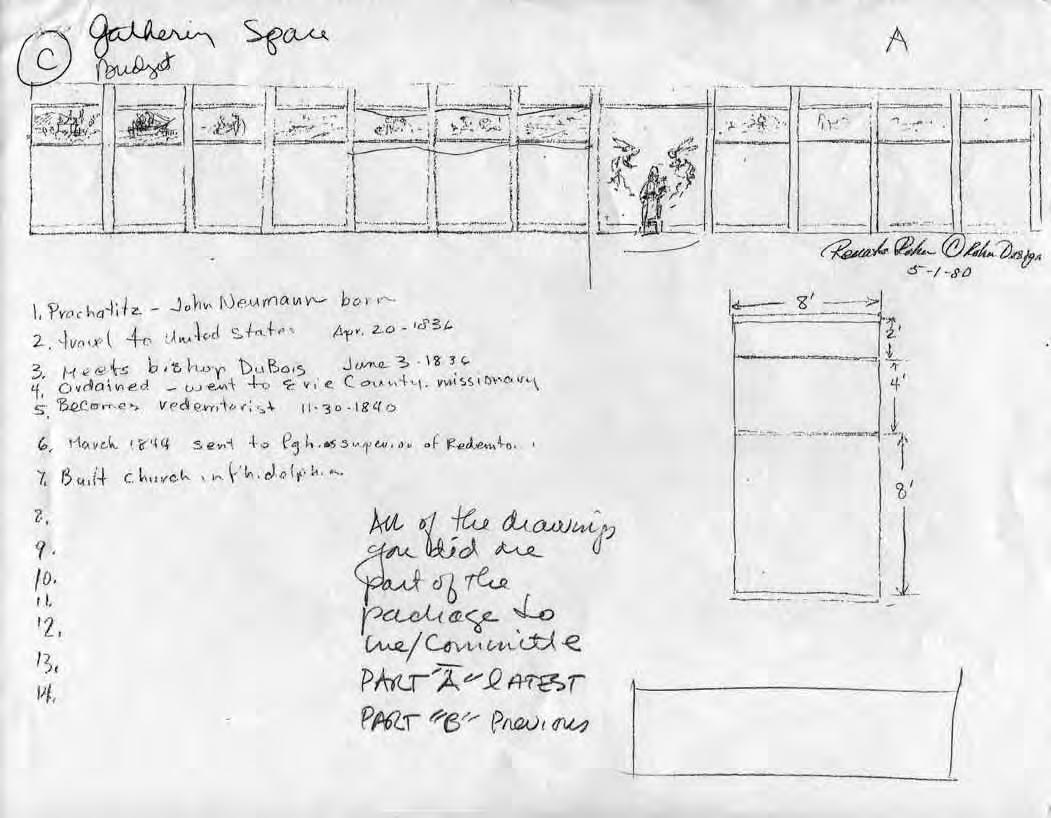 Gatherin Space
C
Budget
A
© Rohn Design
5-1-80
1. Prachatitz - John Neumann born
2. travel to United States Apr. 20-1836
3. Meets bishop DuBois June 3-1836
4. Ordained - went to Erie County. missionary
5. Becomes redemtorist 11-30-1840
6. March 1844 sent to Pgh. as superior of Redemto
7. Built church in Phidolphia
8.
9.
10.
11.
12.
13.
14.
8'
2'
4'
8'
All of the drawings
you did are
part of the
package to
me/Committe
PART "A" LATEST
PART "B" Previous